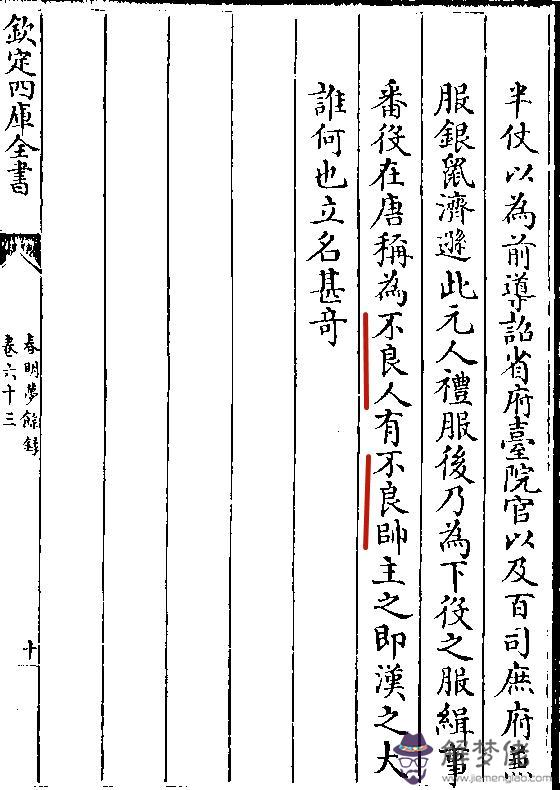 半仗以為前導詔省府臺院官以及百司庶府
服銀鼠濟遜此元人禮服後乃為下役之服緝事
番役在唐稱為不良人有不良帥主之即漢之大
誰何也立名甚竒
欽定四庫全書
春明夢餘錄
卷六十三
十
解梦佬
www.jiemenglao.com